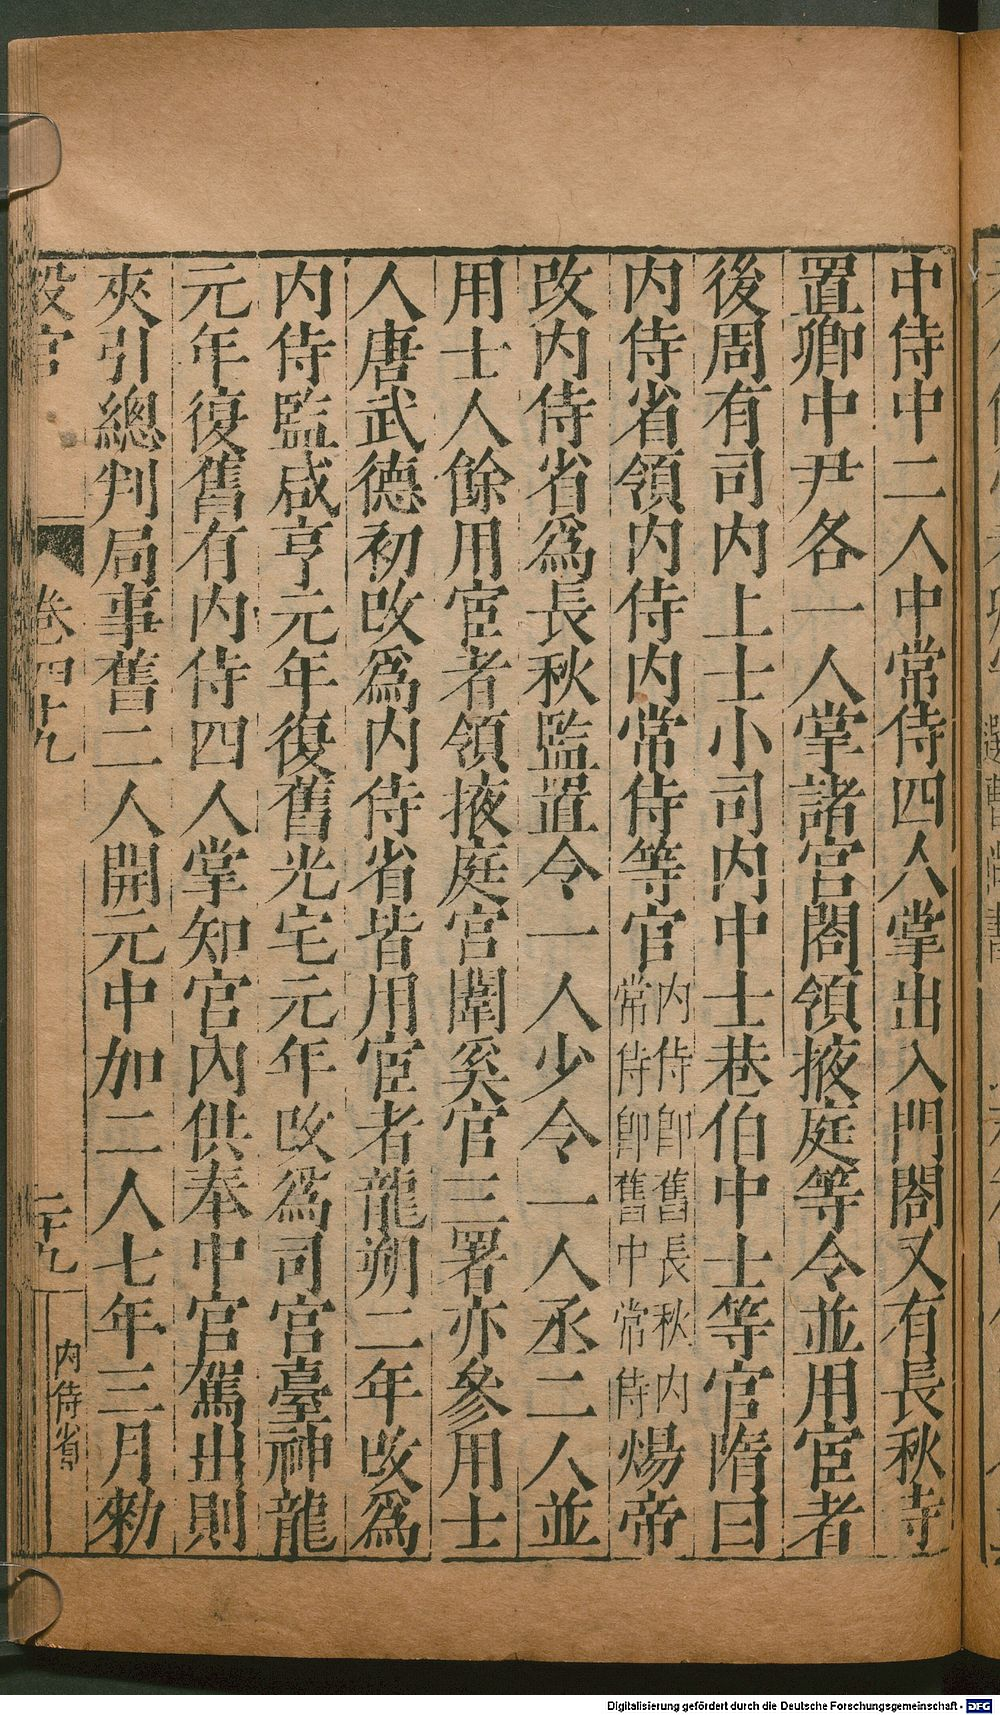 中侍中二人中常侍四人掌出入門閤又有長秋寺
置卿中尹各一人掌諸宮閤領掖庭等令並用宦者
後周有司内上士小司内中士巷伯中士等官隋曰
内侍省領内侍内常侍等官内侍卽舊長秋内常侍卽舊中常侍煬帝
改内侍省爲長秋監置令一人少令一人丞二人並
用士人餘用宦者領掖庭宮闈奚官三署亦參用士
人唐武德初改爲内侍省皆用宦者龍朔二年改爲
内侍監咸亨元年復舊光宅元年改爲司宮臺神龍
元年復舊有内侍四人掌知宮內供奉中宮駕出則
夾引總判局事舊二人開元中加二人七年三月勑
設官
卷四十九
二十九
内侍省
Digitalisierung gefördert durch die Deutsche Forschungsgemeinschaft - DFG